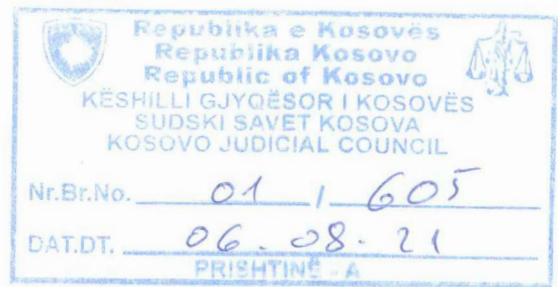 Republika e Kosovës
Republika Kosovo
Republic of Kosovo
KËSHILLI GJYQËSOR I KOSOVËS
SUDSKI SAVET KOSOVA
KOSOVO JUDICIAL COUNCIL
Nr.Br.No. 01 / 605
DAT.DT. 06.08.21
PRISHTINË - A